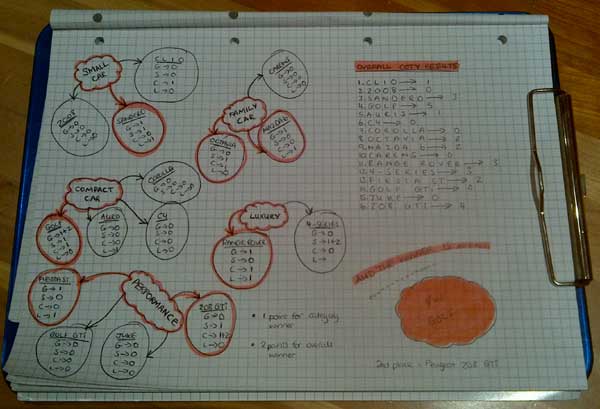 SMALL CAR
CLIO
G→0
S→0
C→1
L→0
2008
G→0
S→0
C→0
L→0
SANDERO
G→1
S→1
C→0
L→1
FAMILY CAR
CARENS
OCTAVIA
G→0
S→1
C→1
L→0
MAZDA 6
G→1
S→0
C→0
L→1
COMPACT CAR
COROLLA
GOLF
G→1+2
S→0
C→1
L→1
AURIS
G→0
S→0
C→0
L→1
C4
G→0
S→0
C→0
L→0
LUXURY
RANGE ROVER
G→1
S→0
C→1
L→1
4-SERIES
G→0
S→1+2
C→0
L→
PERFORMANCE
FIESTA ST
G→1
S→0
C→0
L→1
GOLF GTI
G→0
S→0
C→0
L→0
JUKE
G→0
S→0
C→0
L→0
208 GTi
G→0
S→1
C→1+2
L→0
* 1 point for category winner
* 2 points for overall winner
OVERALL COTY RESULTS
1. CLIO → 1
2. 2008 → 0
3. SANDERO → 3
4. GOLF → 5
5. AURIS → 1
6. C4 → 0
7. COROLLA → 0
8. OCTAVIA → 2
9. MAZDA 6 → 2
10. CARENS → 0
11. RANGE ROVER → 3
12. 4-SERIES → 3
13. FIESTA ST → 2
14. GOLF GTi → 0
15. JUKE → 0
16. 208 GTi → 4
AND THE WINNER IS
GOLF
2nd place = Peugeot 208 GTi